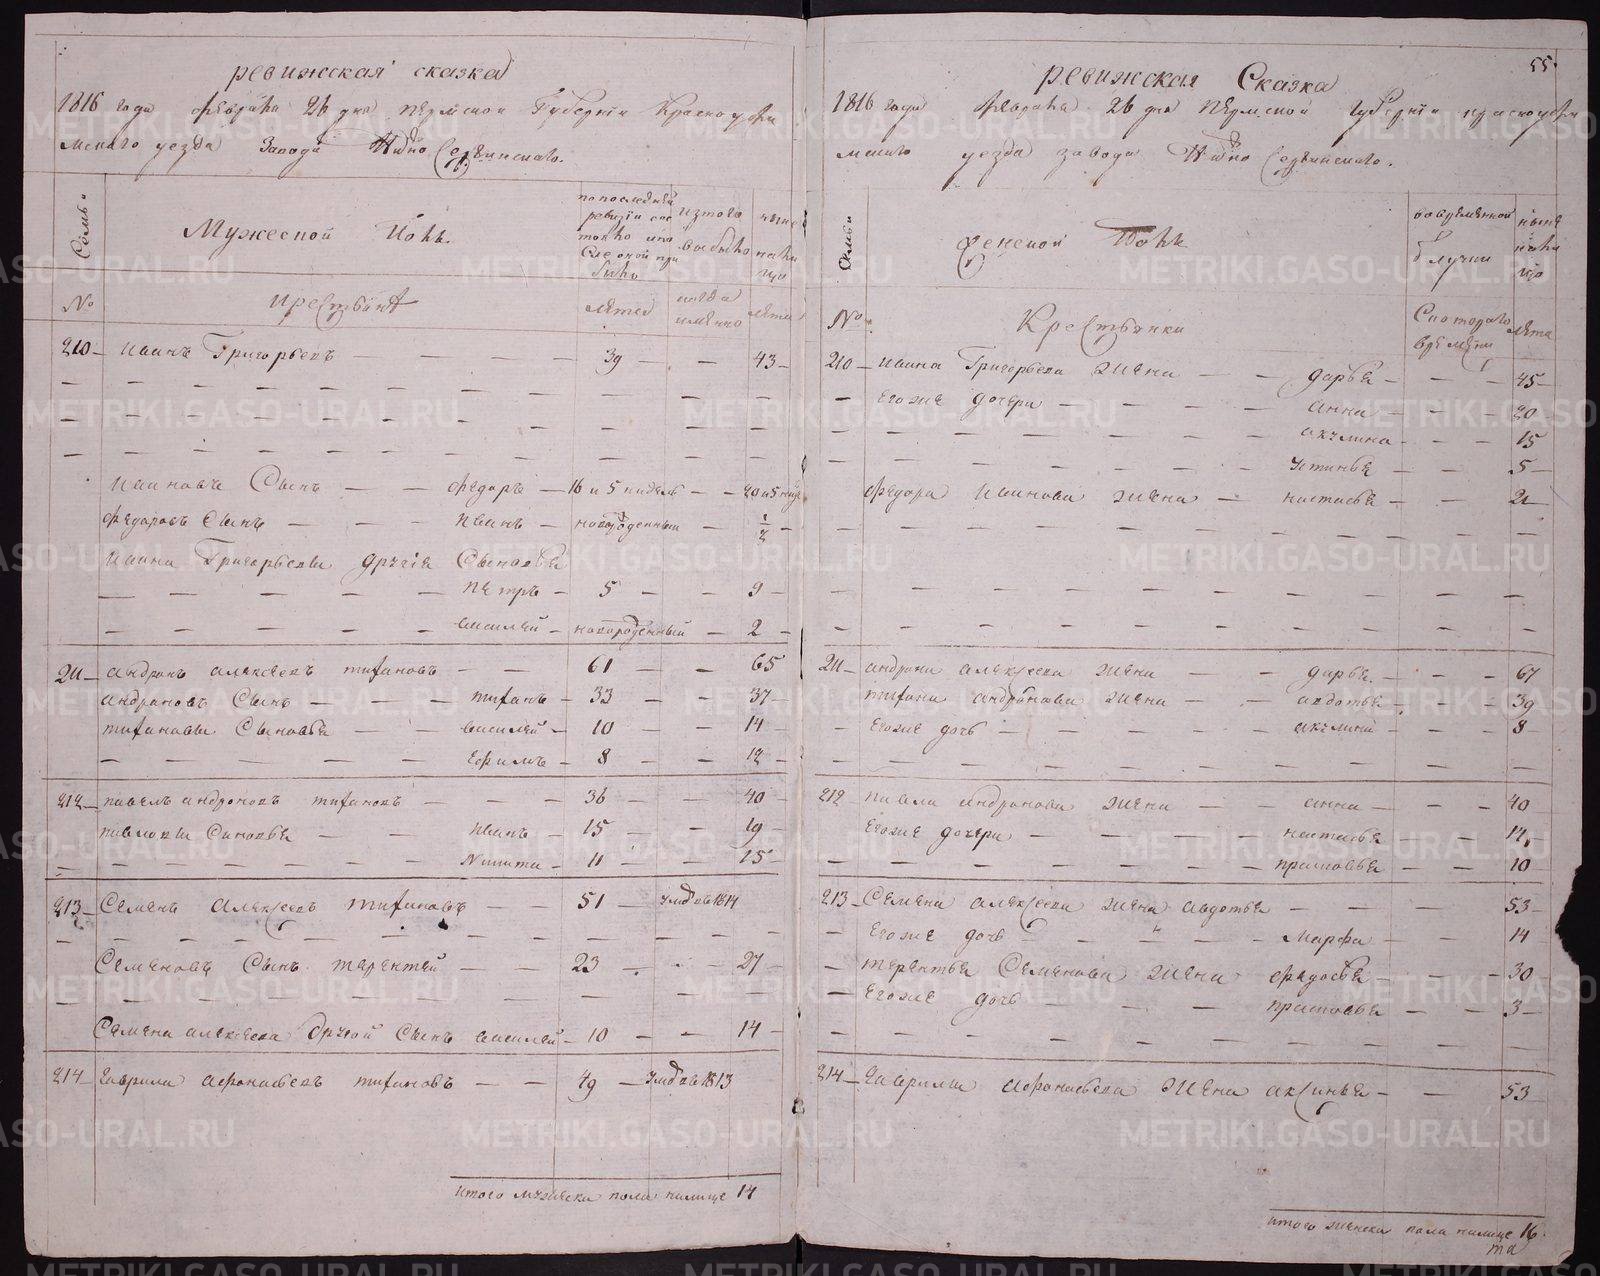 ревижская сказка
1816 года февраля 26 дня пермской Губернiи Красноуфи
мскаго уезда Завода Нижно Сергинскаго.
Семьи
Мужеской Полъ.
по последней
ревизiи сос
тояло ипо
сле оной при
было
изтого
выбыло
ныне
нали
цо
№
крестьянѣ
лѣта
когда
имянно
лѣта
210 иванъ Григорьевъ 39 43
ивановъ Сынъ федоръ 16 и 5 нидель 20 и 5 нид
федоровъ Сынъ иванъ новорожденный 1/2
ивана Григорьева другiя Сыновья
петръ 5 9
василей новорожденный 2
211 андронъ алексеевъ титановъ 61 65
андроновъ Сынъ титанъ 33 37
титановы Сыновья василей 10 14
ефимъ 8 12
212 павелъ андроновъ титановъ 36 40
павловы Сыновья иванъ 15 19
Никита 11 15
213 Семенъ алексеевъ титановъ 51 умръ въ 1814
Семеновъ Сынъ терентей 23 27
Семена алексеева другой Сынъ василей 10 14
214 гаврила афонасьевъ титановъ 49 умръ въ 1813
итого мужеска пола налице 14
55
ревижская Сказка
1816 года февраля 26 дня пермской губернiи красноуфи
мскаго уезда завода Нижно Сергинскаго.
Семьи
женской Полъ
вовременной
отлучки
ныне
нали
цо
№
Крестьянки
Скотораго
времяни
лѣта
210 ивана Григорьева жена дарья 45
Егоже дочери анна 20
акулина 15
устинья 5
федора иванова жена настасья 21
211 андрона алексеева жена дарья 67
титана андронова жена авдотья 39
Егоже дочь акулина 8
212 павла андронова жена анна 40
Егоже дочери настасья 14
прасковья 10
213 Семена алексеева жена авдотья 53
Егоже дочь Марфа 14
терентья Семенова жена федосья 30
Егоже дочь прасковья 3
214 гаврилы афонасьева жена аксинья 53
итого женска пола налице 16
METRIKI.GASO-URAL.RU